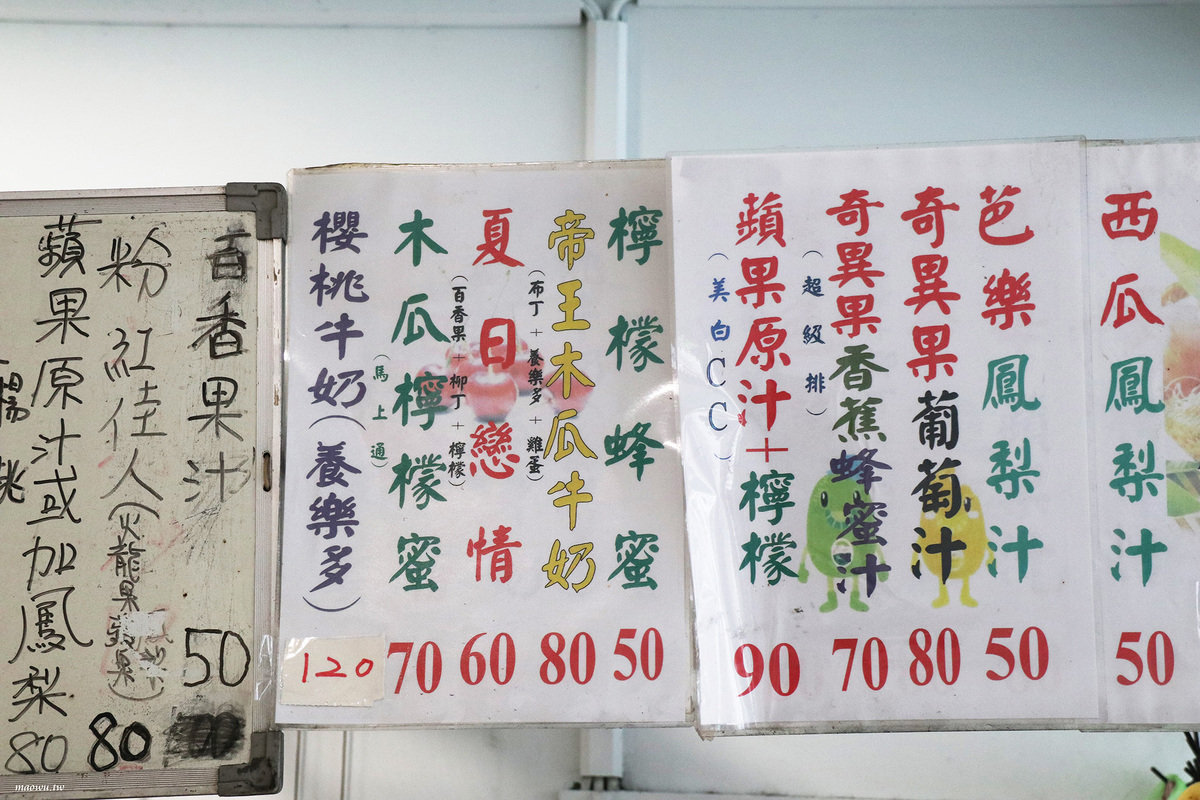 西瓜鳳梨汁
50
芭樂鳳梨汁
50
奇異果葡萄汁
80
奇異果香蕉蜂蜜汁
(超級排)
70
蘋果原汁+檸檬
(美白CC)
90
檸檬蜂蜜
50
帝王木瓜牛奶
(布丁+養樂多+雞蛋)
80
夏日戀情
(百香果+柳丁+檸檬)
60
木瓜檸檬蜜
(馬上通)
70
櫻桃牛奶(養樂多)
120
百香果汁
50
粉紅佳人(火龍果
蘋果
80
蘋果原汁或加鳳梨
80
楊桃
maowu.tw